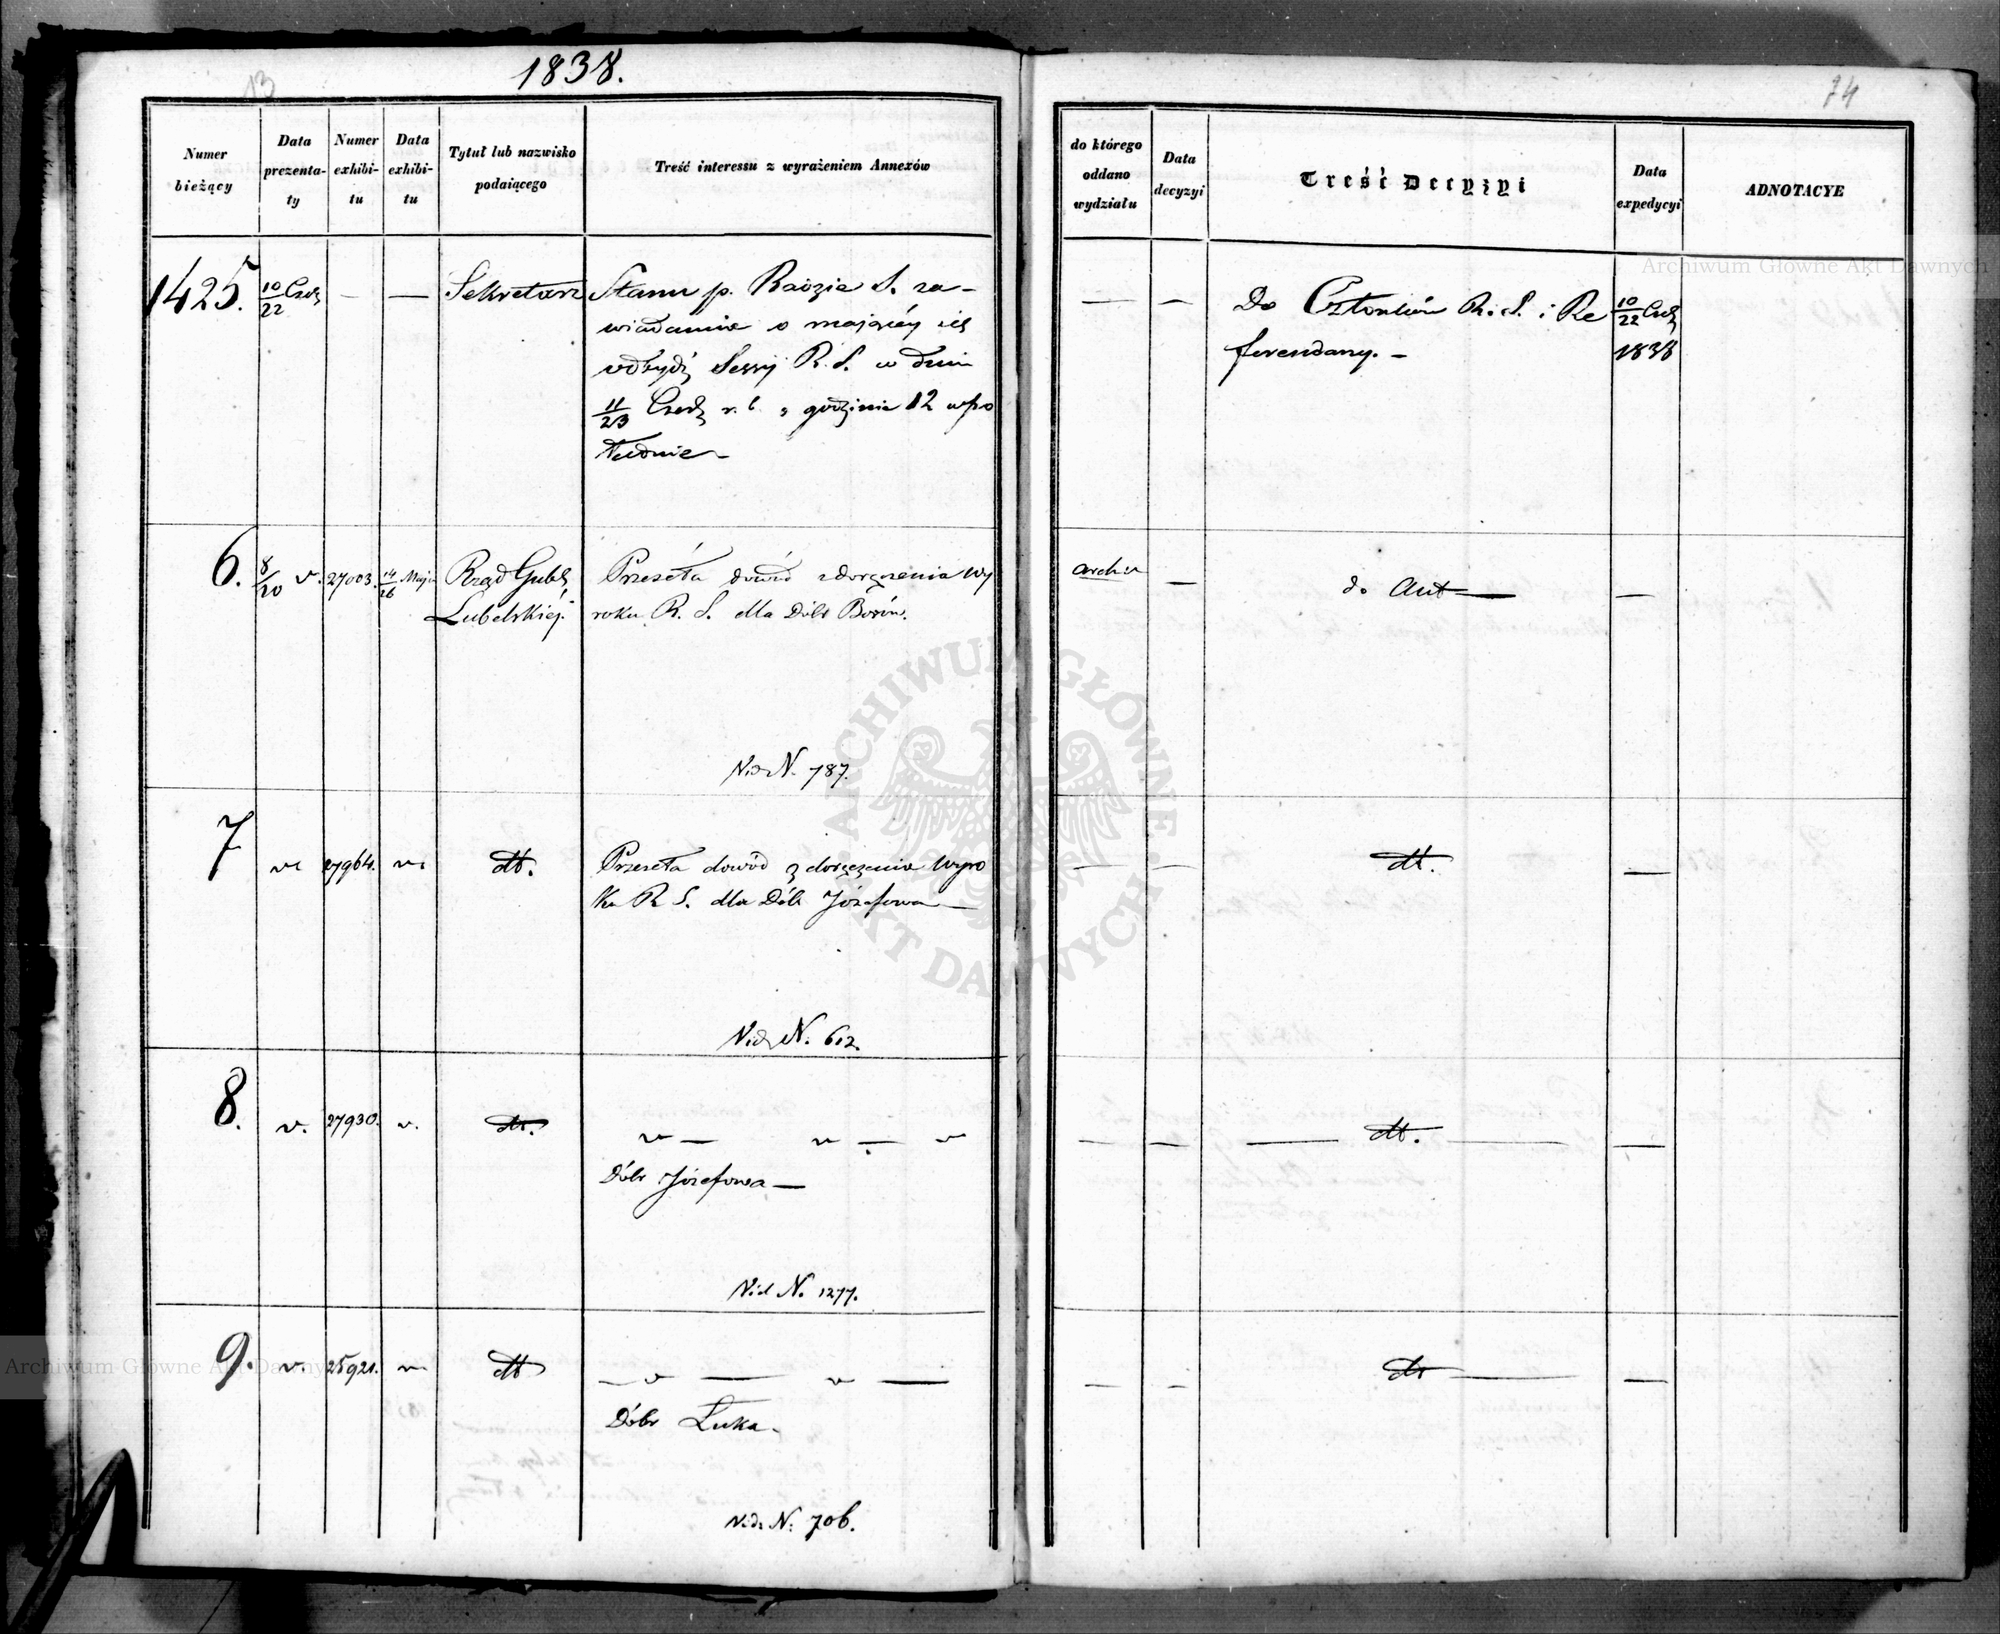 13
1838.
Numer bieżący
Data prezenta-ty
Numer exhibi-tu
Data exhibi-tu
Tytuł lub nazwisko podaiącego
Treść interessu z wyrażeniem Annexów
1425.
10/22 Czer
—
—
Sekretarz
Stanu p. Radzie S. za-
wiadamia o mającéj się
odbydź Sessyi R. S. w dniu
11/23 Czer r. b. o godzinie 12 w po
łudnie –
6.
8/20 v.
27003.
14/26 Maja
Rząd Gub.
Lubelskiéj.
Przeseła dowód doręczenia Wy
roku R. S. dla Dóbr
Vid. N. 787.
7
v.
27964.
v.
dt.
Przeseła dowód doręczenia Wyro
ku R S. dla Dóbr Józefowa —
Vid. N. 612.
8.
v.
27930.
v.
dt.
v — v — v
Dóbr Józefowa —
Vid N. 1277.
9.
v.
25921.
v.
dt
— v — v —
Dóbr Łuka.
Vid. N. 706.
74
do którego oddano wydziału
Data decyzyi
Treść Decyzyi
Data expedycyi
ADNOTACYE
—
—
Do Członków R. S. i Re
ferendarzy. –
10/22 Czer
1838
—
do Akt —
—
—
—
dt.
—
—
—
— dt. —
—
—
—
dt —
—
ARCHIWUM GŁÓWNE AKT DAWNYCH
Archiwum Główne Akt Dawnych
Archiwum Główne Akt Dawnych